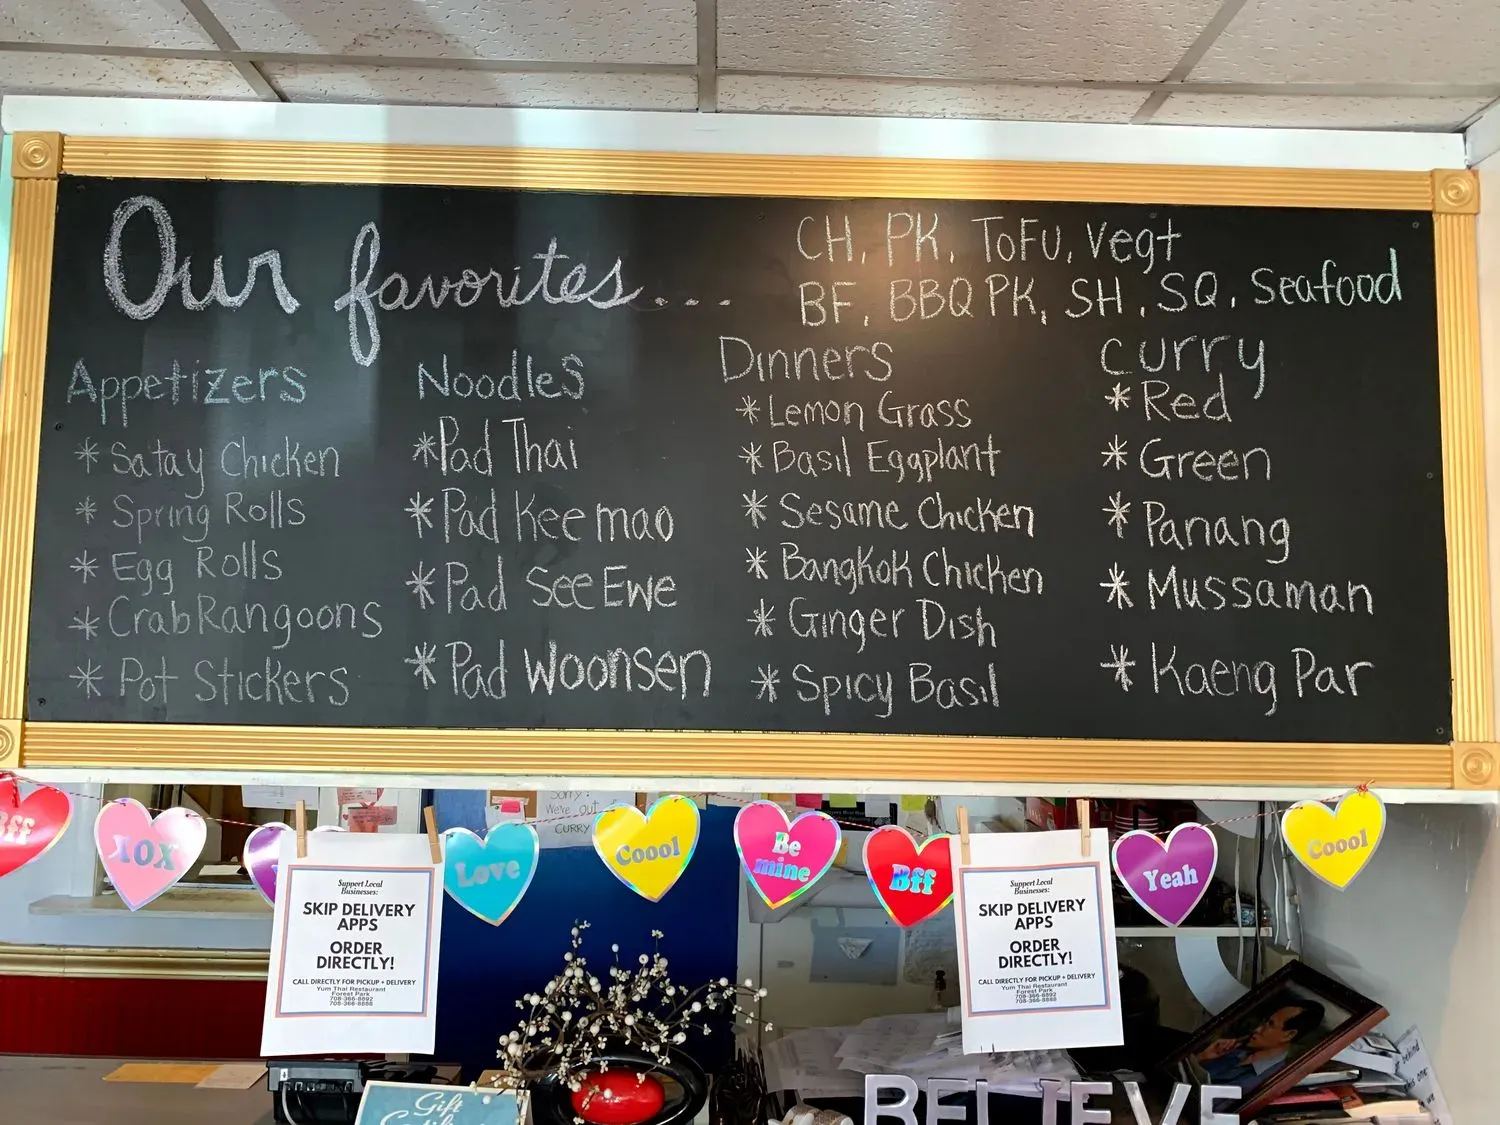 Our favorites...
CH, PK, ToFu, Vegt
BF, BBQ PK, SH, SQ, Seafood
Appetizers
* Satay Chicken
* Spring Rolls
* Egg Rolls
* Crab Rangoons
* Pot Stickers
Noodles
* Pad Thai
* Pad Kee mao
* Pad See Ewe
* Pad Woonsen
Dinners
* Lemon Grass
* Basil Eggplant
* Sesame Chicken
* Bangkok Chicken
* Ginger Dish
* Spicy Basil
Curry
* Red
* Green
* Panang
* Mussaman
* Kaeng Par
Sorry!
We're out
CURRY
Bff
XOX
Love
Coool
Be
mine
Bff
Yeah
Coool
Support Local
Businesses:
SKIP DELIVERY
APPS
ORDER
DIRECTLY!
CALL DIRECTLY FOR PICKUP + DELIVERY
Yum Thai Restaurant
Forest Park
708-366-8892
708-366-8888
Support Local
Businesses:
SKIP DELIVERY
APPS
ORDER
DIRECTLY!
CALL DIRECTLY FOR PICKUP + DELIVERY
Yum Thai Restaurant
Forest Park
708-366-8892
708-366-8888
Gift
BELIEVE
behind